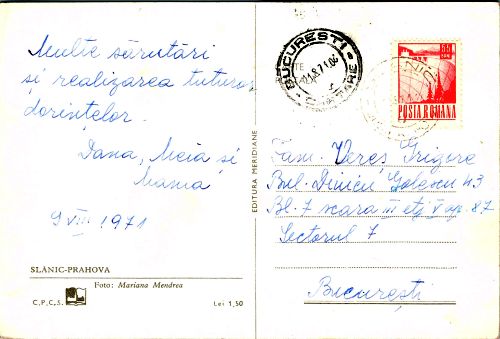 Multe sărutări
și realizarea tuturor
dorințelor.
Dana, Meia și
Mama
9 VIII 1971
SLĂNIC-PRAHOVA
Foto: Mariana Mendrea
C.P.C.S.
Lei 1,50
EDITURA MERIDIANE
BUCUREȘTI
POSTA ROMANA
Fam. Vereș Grigore
Bul. Dinicu Golescu 43
Bl. 7 scara III etj V ap. 87
Sectorul 7
București